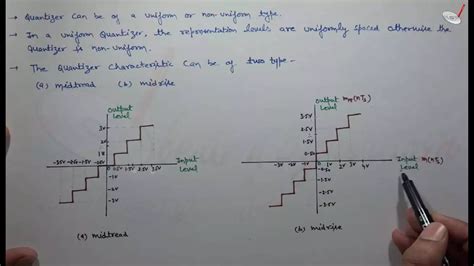 → Quantizer Can be of a uniform or non-uniform type.
→ In a uniform Quantizer, the representation levels are uniformly spaced otherwise the
Quantizer is non-uniform.
→ The Quantizer Characteristic Can be of two type -
(a) midtread (b) midrise
Output
Level
3V
2V
1V
-3.5V -2.5 -1.5V -.5V
0 0.5V 1.5V 2.5V 3.5V
-1V
-2V
-3V
Input
Level
(a) midtread
Output
Level
3.5V
2.5V
1.5V
0.5V
-3V -2V -1V
0 1V 2V 3V 4V
-0.5V
-1.5V
-2.5V
-3.5V
Input m(nTs)
Level
(b) midrise